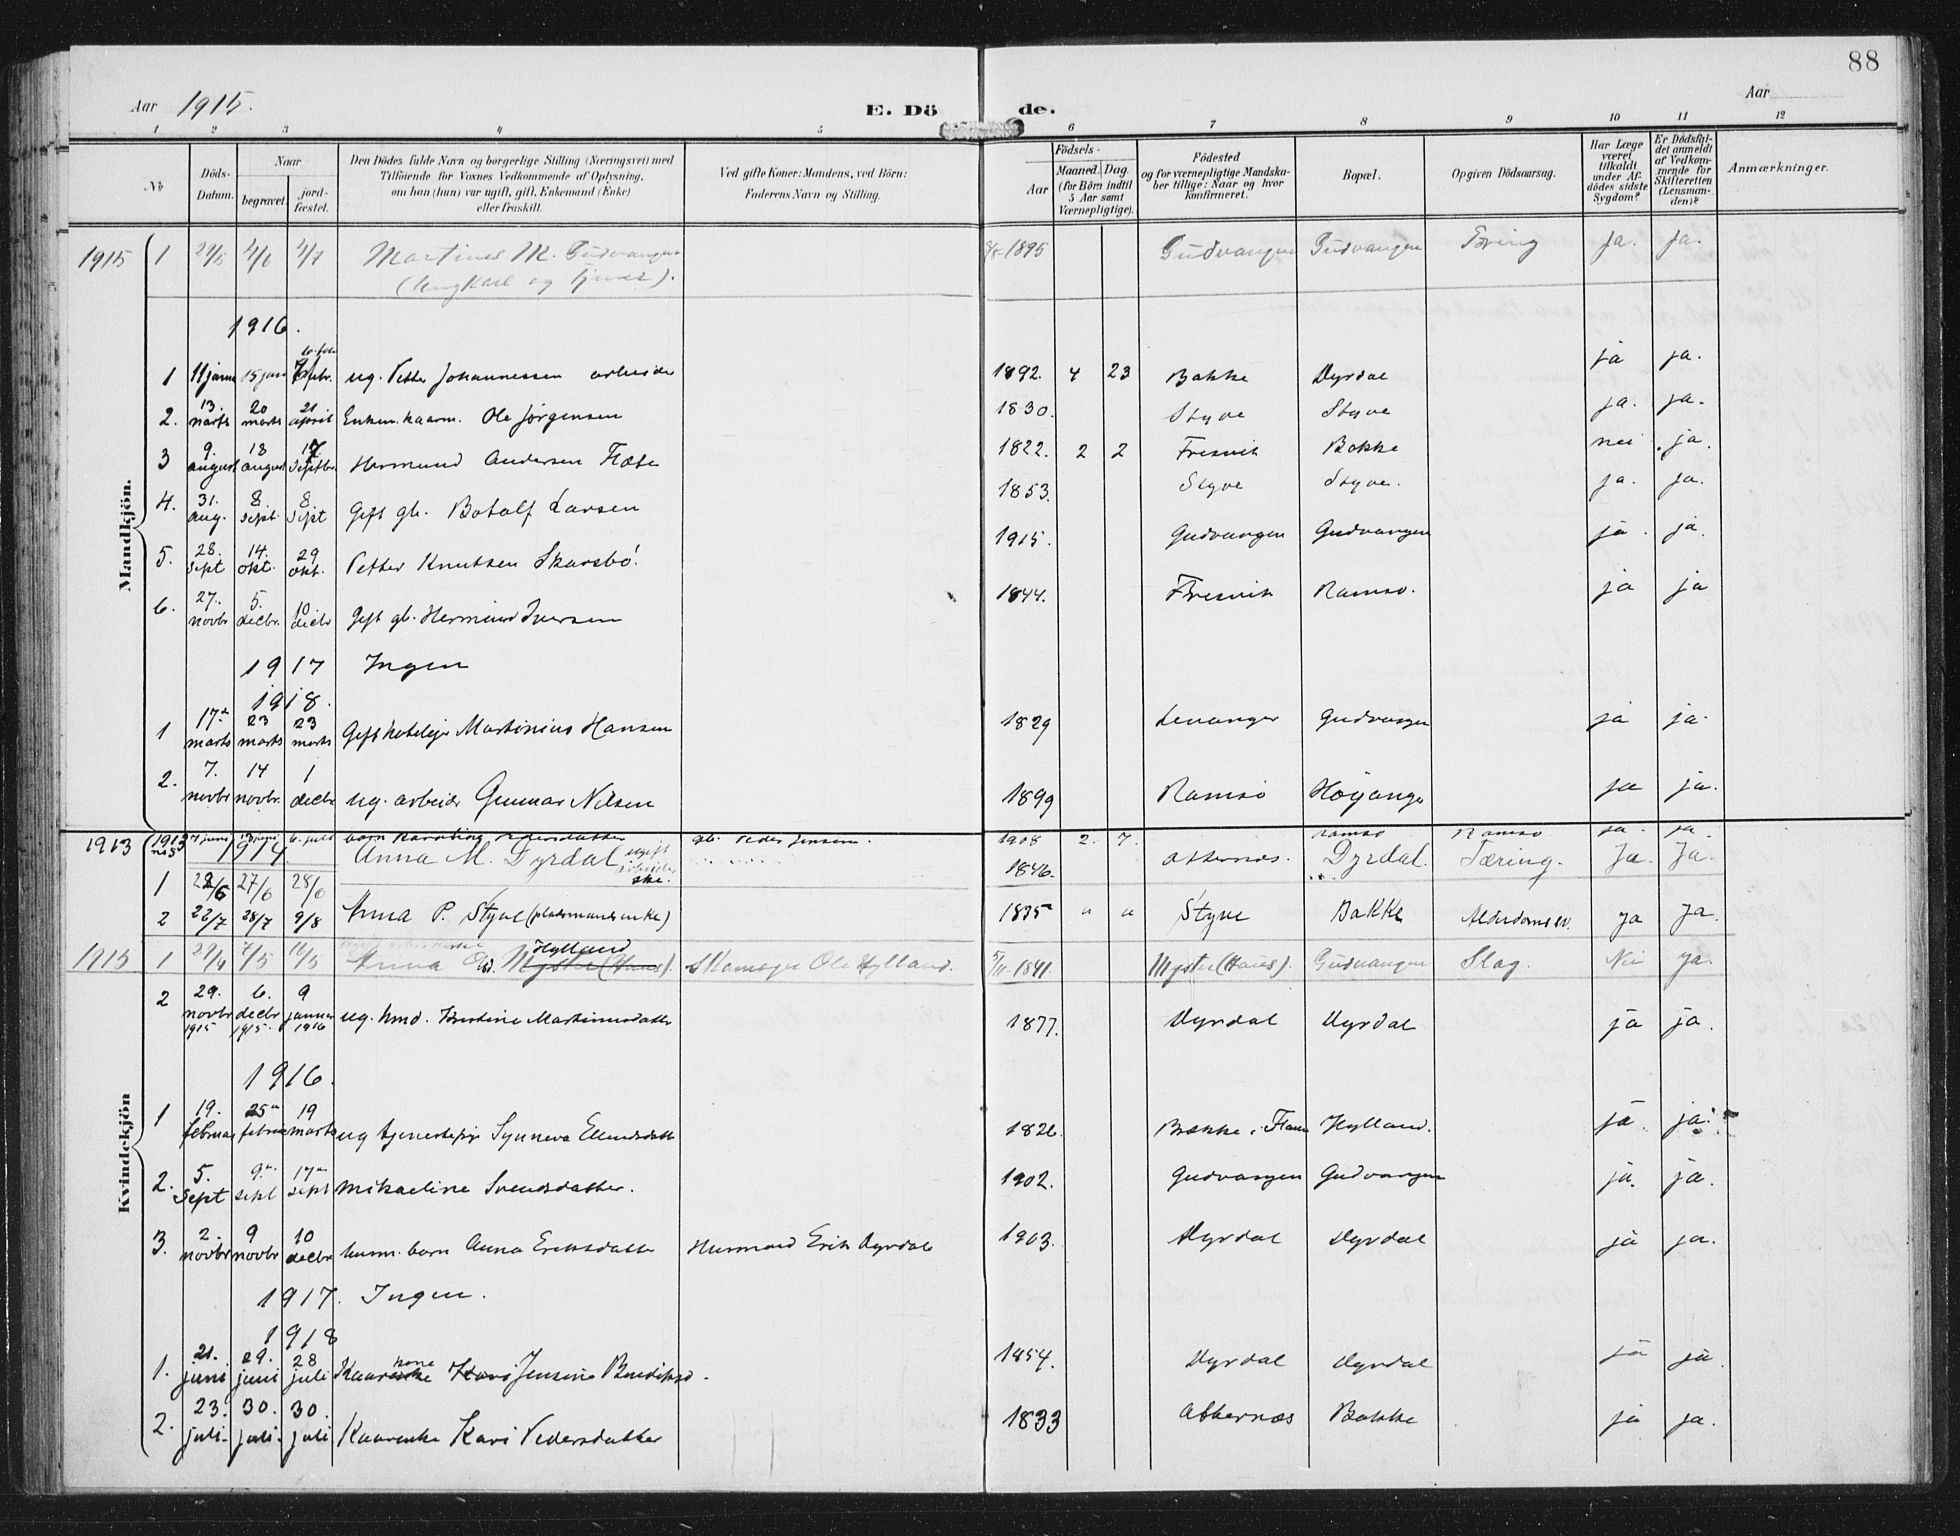 88
Aar 1915.
E. Döde.
Aar
1 2 3 4 5 6 7 8 9 10 11 12
No
Döds-Datum.
Naar
begravet.
jord-fæstet.
Den Dödes fulde Navn og borgerlige Stilling (Næringsvei) med
Tilföiende for Voxnes Vedkommende af Oplysning,
om han (hun) var ugift, gift, Enkemand (Enke)
eller fraskilt.
Ved gifte Koner: Mandens, ved Börn:
Faderens Navn og Stilling.
Födsels-
Aar
Maaned. Dag.
(for Börn indtil
5 Aar samt
Værnepligtige).
Födested
og for værnepligtige Mandska-
ber tillige: Naar og hvor
konfirmeret.
Bopæl.
Opgiven Dödsaarsag.
Har Læge
været
tilkaldt
under Af-
dödes sidste
Sygdom?
Er Dödsfal-
det anmeldt
af Vedkom-
mende for
Skifteretten
(Lensman-
den)?
Anmærkninger.
Mandkjön.
1915 1 4/6 4/7 Martinus M. Gudvangen 1895 Gudvangen Gudvangen Tæring Ja. Ja.
(ungkarl og tjener).
1916.
1 11 januar 15 jan febr. ug. Petter Johannessen arbeider 1892. 4 23 Bakke Dyrdal ja ja.
2. 13. marts 20 marts 21 april Enkem. kaarm. Ole Jørgensen 1830. Styve Styve ja. ja.
3 9. august 18 august 17 septbr. Hermund Andersen 1822. 2 2 Fresvik Bakke nei ja.
4. 31. aug. 8. sept. 8 sept Gift gb. Botolf Larsen 1853. Styve Styve. ja. ja.
5. 28. sept 14. okt. 29 okt. Petter Knutsen Skarsbö. 1915. Gudvangen Gudvangen ja. ja.
6. 27. novbr 5. decbr. 10 decbr Gift gb. Hermund Iversen 1844. Fresvik Ramsö. ja ja
1917 Ingen
1918.
1 17de marts 23 marts 23 marts Gift Martinius Hansen 1829 Levanger Gudvangen ja ja.
2. 7. novbr 14 novbr. 1 decbr ug. arbeider Gunnar Nilsen 1899 Ramsö Höyanger ja ja.
Kvindekjön
1913 (1913 no 3 7 juni juni 6. juli barn Pedersdatter gb. Peder Jensen. 1908 2. 7. Ramsö Ramsö ja. ja.
1914
1 22/6 27/6 28/6 Anna M. Dyrdal ugift arbeiderske. 1846. Atternæs. Dyrdal. Tæring. Ja. Ja.
2 22/7 28/7 9/8 Anna P. Styve (pladsmandsenke) 1835 " " Styve Bakke Alderdomssv. ja Ja.
1915 1 7/5 16/5 Anna Hylland Myster (Haus). Skomager Ole Hylland. 1841. Myster (Haus). Gudvangen Slag. Nei ja.
2 29. novbr 1915 6. decbr 1915. 9 januar 1916 ug. hmd. Kristine Martinusdatter 1877. Dyrdal Dyrdal ja ja.
1916.
1 19. februar 25de februar 19 marts ug tjenestepige Synneva Ellendsdatter 1826. Brekke, Flaam Hylland. ja. ja.
2. 5. sept 9de sept 17de sept Mikaeline Svendsdatter. 1902. Gudvangen Gudvangen ja. ja.
3. 2. novbr 9 novbr 10 decbr husm. barn Anna Eriksdatter Husmand Erik Dyrdal 1903. Dyrdal Dyrdal ja ja.
1917. Ingen.
1918
1. 21. juni 29. juni 28 juli Kaarenke kone Kari Jensine Bendiksd. 1854. Dyrdal Dyrdal ja ja.
2. 23. juli. 30. juli. 30. juli Kaarenke Kari Pedersdatter 1833 Atternæs Bakke ja ja.